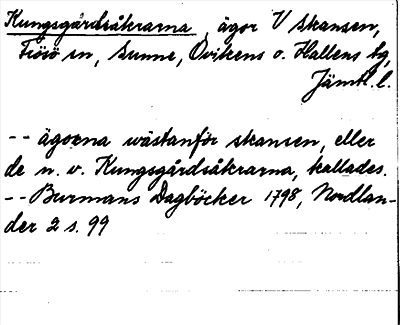 Kungsgårdsåkrarna, ägor V Skansen,
Frösö sn, Sunne, Ovikens o. Hallens tg,
Jämtl. l.
-- ägorna wästanför skansen, eller
de n. v. Kungsgårdsåkrarna, kallades.
-- Burmans Dagböcker 1798, Nordlan-
der 2 s. 99